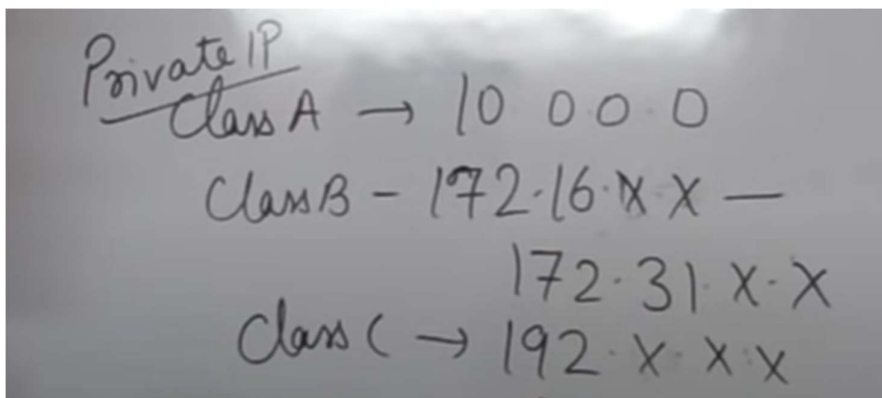 Private IP
Class A → 10 0.0.0
Class B - 172.16.X X —
172.31.X.X
Class C → 192.X.X.X